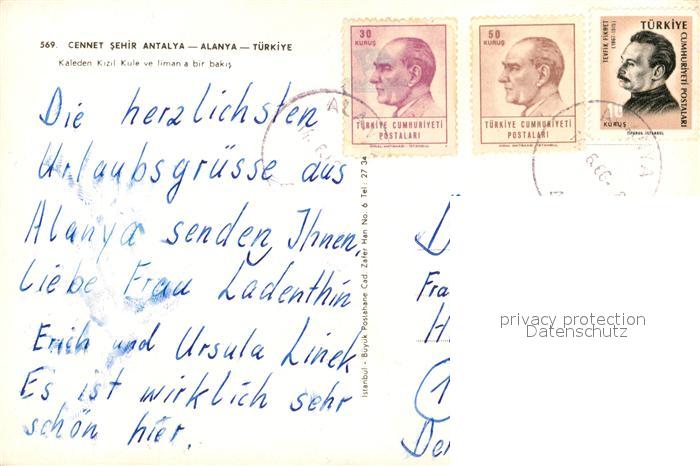 569. CENNET ŞEHİR ANTALYA — ALANYA — TÜRKİYE
Kaleden Kızıl Kule ve liman a bir bakış
Die herzlichsten
Urlaubsgrüsse aus
Alanya senden Ihnen,
liebe Frau Ladenthin
Erich und Ursula Linek
Es ist wirklich sehr
schön hier.
İstanbul - Büyük Postahane Cad. Zafer Han No. 6 Tel: 27 34
30
KURUŞ
TÜRKİYE CUMHURİYETİ
POSTALARI
50
KURUŞ
TÜRKİYE CUMHURİYETİ
POSTALARI
TÜRKİYE
CUMHURİYETİ POSTALARI
TEVFİK FİKRET
KURUŞ
ALANYA
ALANYA
Fra
H
(1
Der
privacy protection
Datenschutz